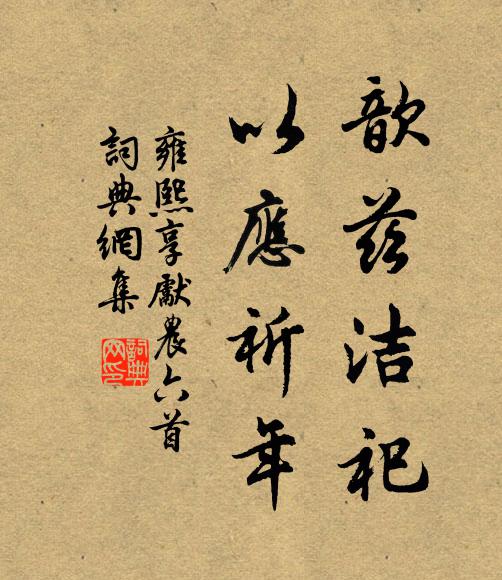 歆茲洁祀
以應祈年
雍熙享獻農六首
詞典網集
詞典
网印